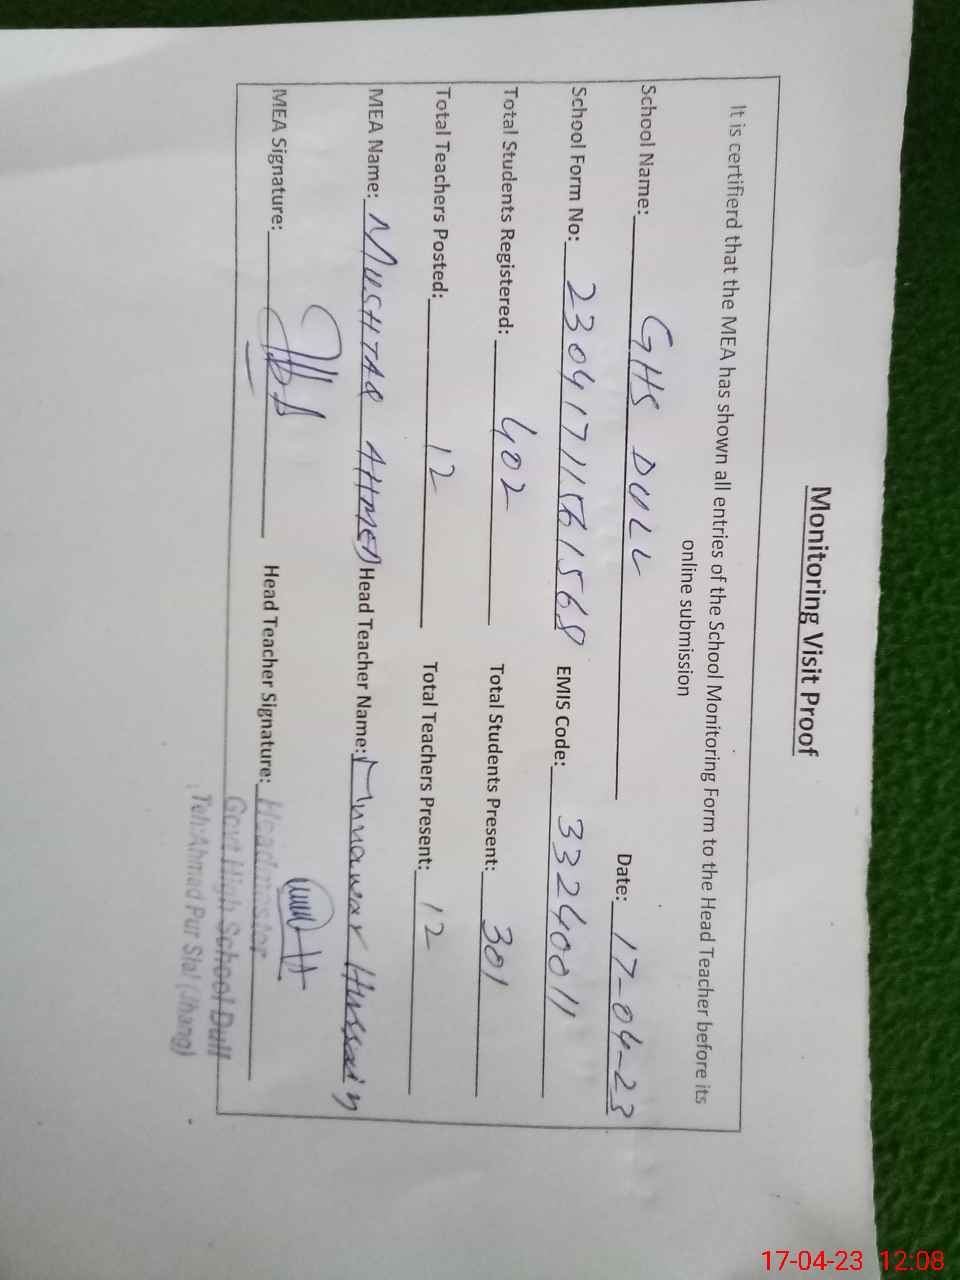 Monitoring Visit Proof
It is certifierd that the MEA has shown all entries of the School Monitoring Form to the Head Teacher before its
online submission
School Name: GHS DULL Date: 17-04-23
School Form No: 23041711561568 EMIS Code: 33240011
Total Students Registered: 402 Total Students Present: 301
Total Teachers Posted: 12 Total Teachers Present: 12
MEA Name: MUSHTAQ AHMED Head Teacher Name: Munawar Hussain
MEA Signature: Head Teacher Signature:
Headmaster
Govt High School Dull
Teh:Ahmad Pur Sial (Jhang)
17-04-23 12:08